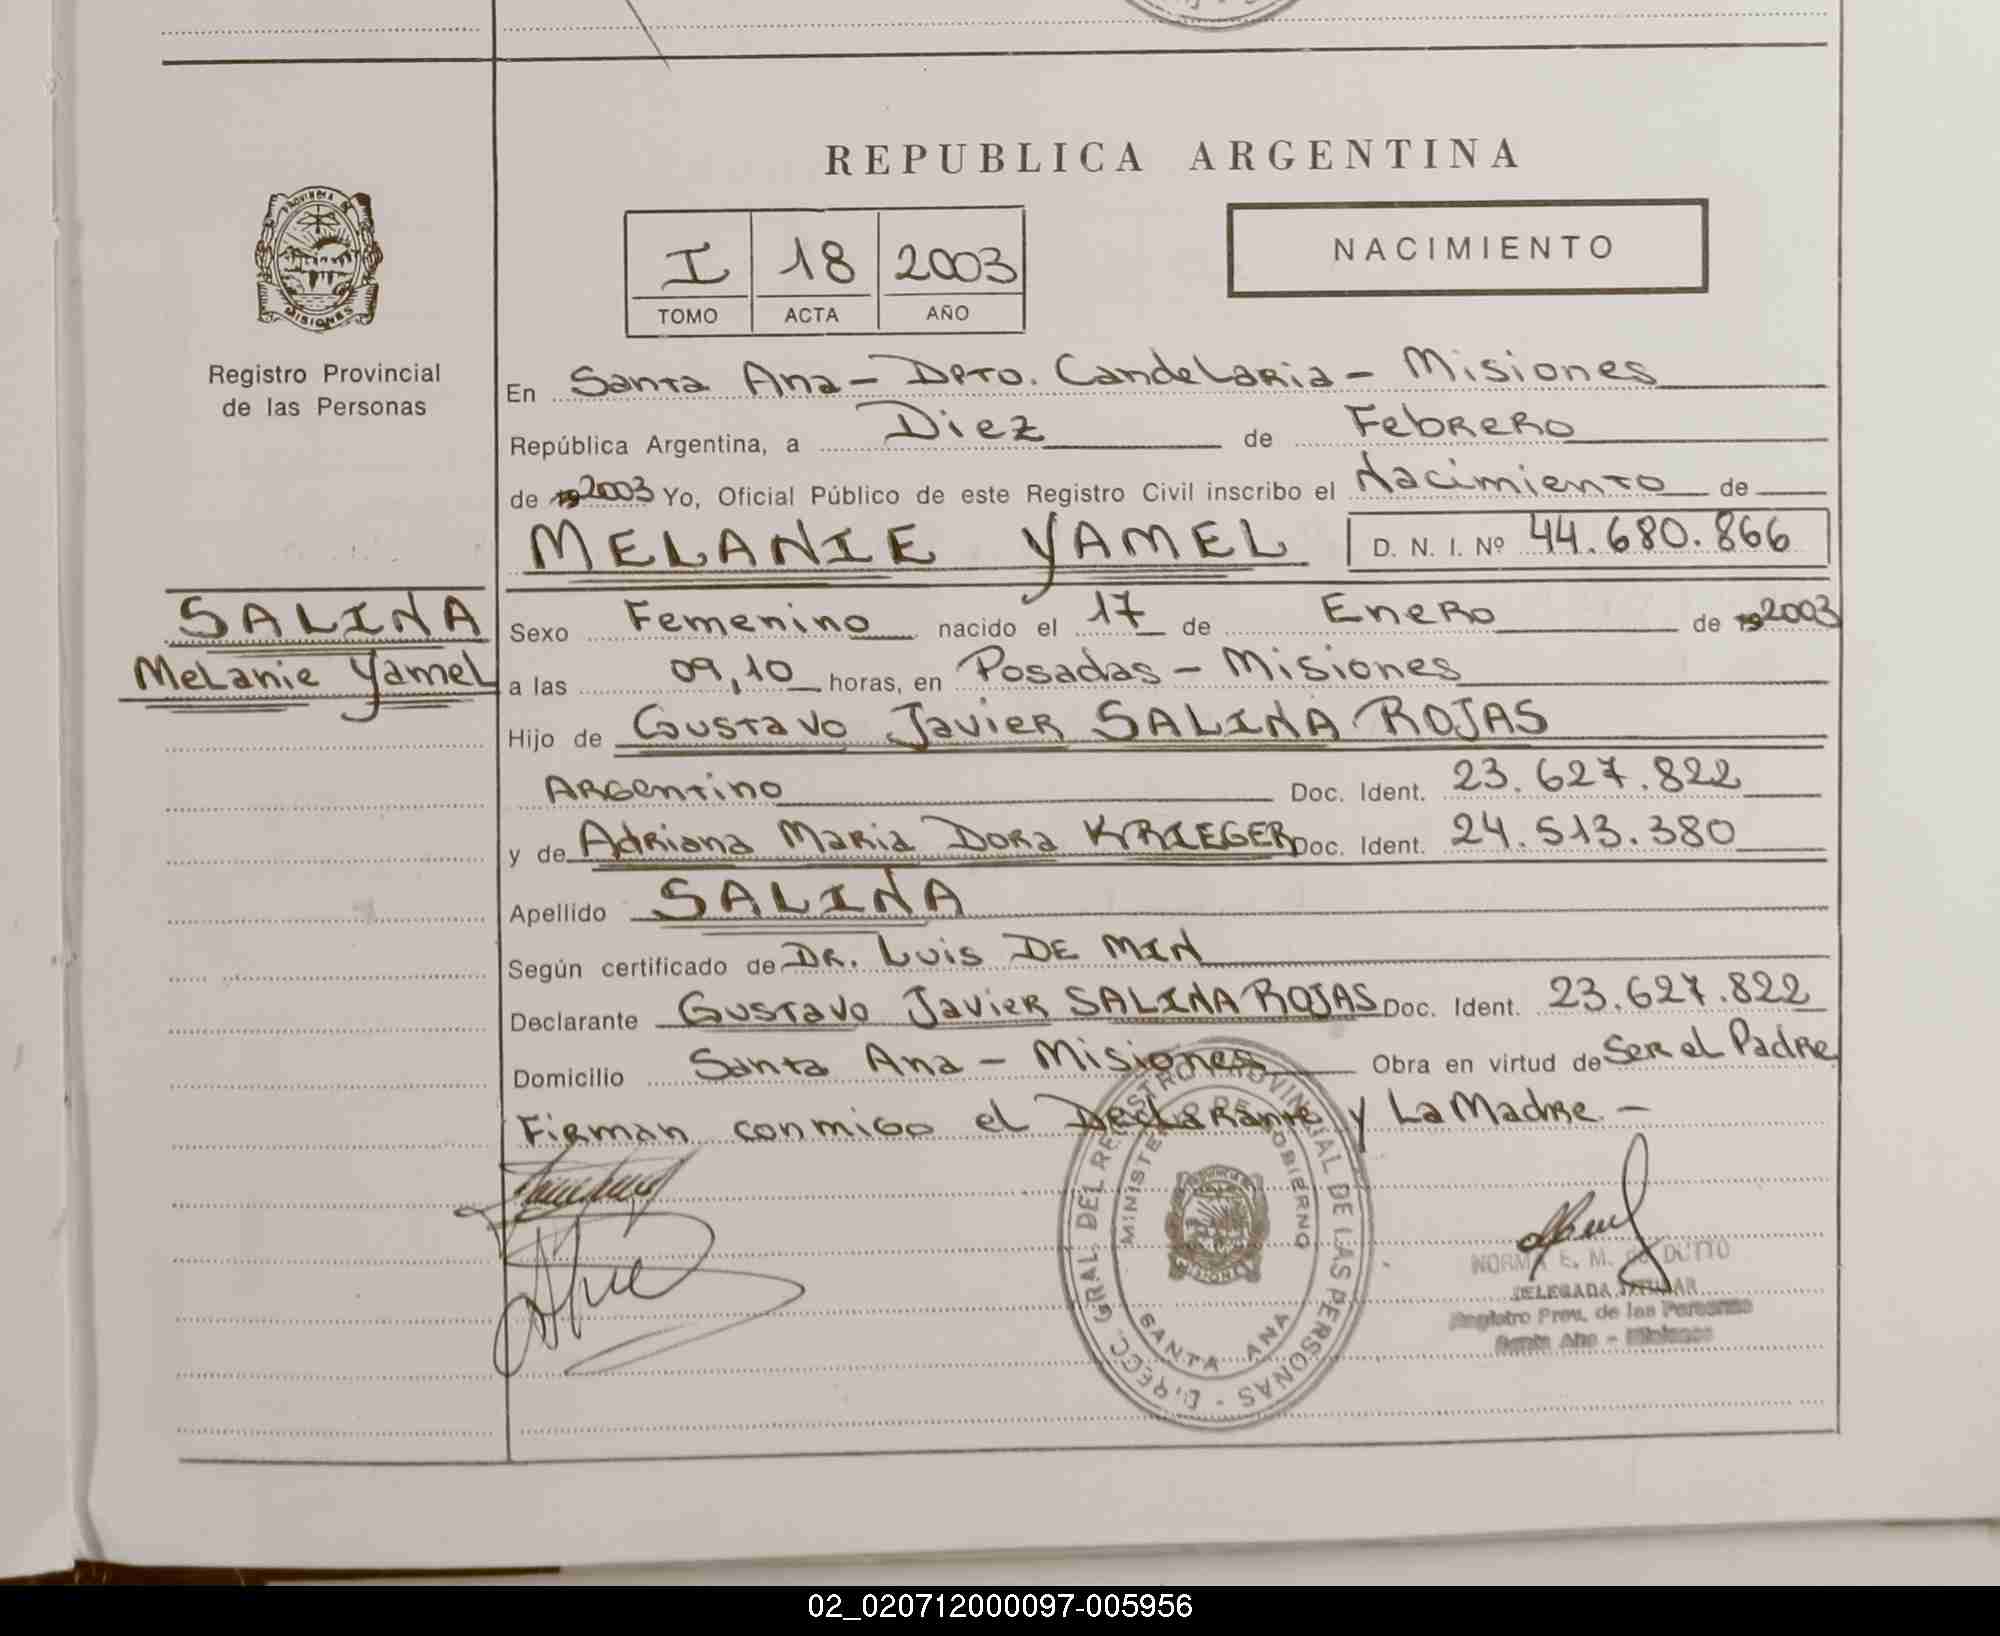 REPUBLICA ARGENTINA
I 18 2003
TOMO ACTA AÑO
NACIMIENTO
PROVINCIA DE
MISIONES
Registro Provincial
de las Personas
En Santa Ana - Dpto. Candelaria - Misiones
República Argentina, a Diez de Febrero
de 192003 Yo, Oficial Público de este Registro Civil inscribo el Nacimiento de
MELANIE YAMEL D. N. I. Nº 44.680.866
SALINA
Melanie Yamel
Sexo Femenino nacido el 17 de Enero de 192003
a las 09,10 horas, en Posadas - Misiones
Hijo de Gustavo Javier SALINA ROJAS
Argentino Doc. Ident. 23.627.822
y de Adriana Maria Dora KRIEGER Doc. Ident. 24.513.380
Apellido SALINA
Según certificado de DR. Luis DE MIN
Declarante Gustavo Javier SALINA ROJAS Doc. Ident. 23.627.822
Domicilio Santa Ana - Misiones Obra en virtud de Ser el Padre
Firman conmigo el Declarante y La Madre. -
DIRECC. GRAL. DEL REGISTRO PROVINCIAL DE LAS PERSONAS -
MINISTERIO DE GOBIERNO
MISIONES
SANTA ANA
NORMA E. M. de DUTTO
DELEGADA TITULAR
Registro Prov. de las Personas
Santa Ana - Misiones
02_020712000097-005956